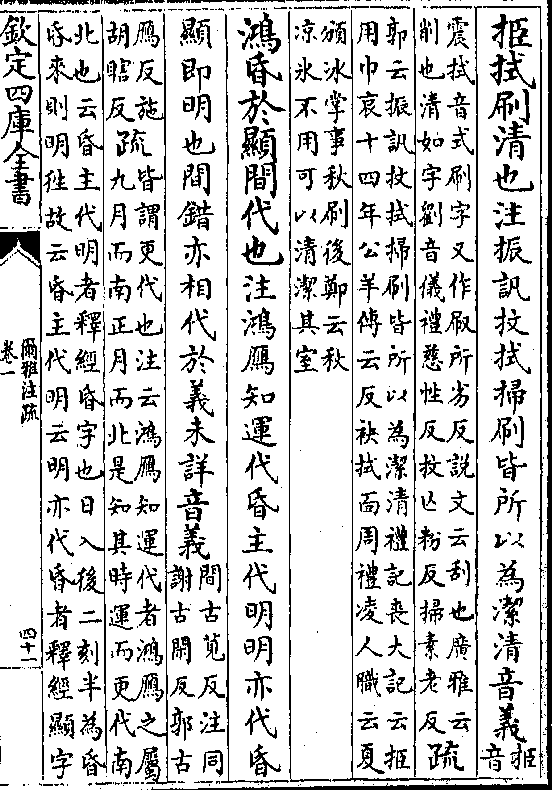 挋拭刷清也注振訊抆拭掃刷皆所以為潔清音義挋音
震拭音式刷字又作㕞所劣反説文云刮也廣雅云
削也清如字劉音儀禮慈性反抆亡粉反掃素老反疏
郭云振訊抆拭掃刷皆所以為潔清禮記喪大記云挋
用巾哀十四年公羊傳云反袂拭面周禮凌人職云夏
頒冰掌事秋刷後鄭云秋
凉冰不用可以清潔其室
鴻昏於顯間代也注鴻鴈知運代昏主代明明亦代昏
顯即明也間錯亦相代於義未詳音義間古莧反注同
謝古閑反郭古
鴈反施胡瞎反疏
皆謂更代也注云鴻鴈知運代者鴻鴈之屬
九月而南正月而北是知其時運而更代南
北也云昏主代明者釋經昏字也日入後二刻半為昏
昏來則明往故云昏主代明云明亦代昏者釋經顯字
欽定四庫全書
爾雅注疏
卷一
四十一